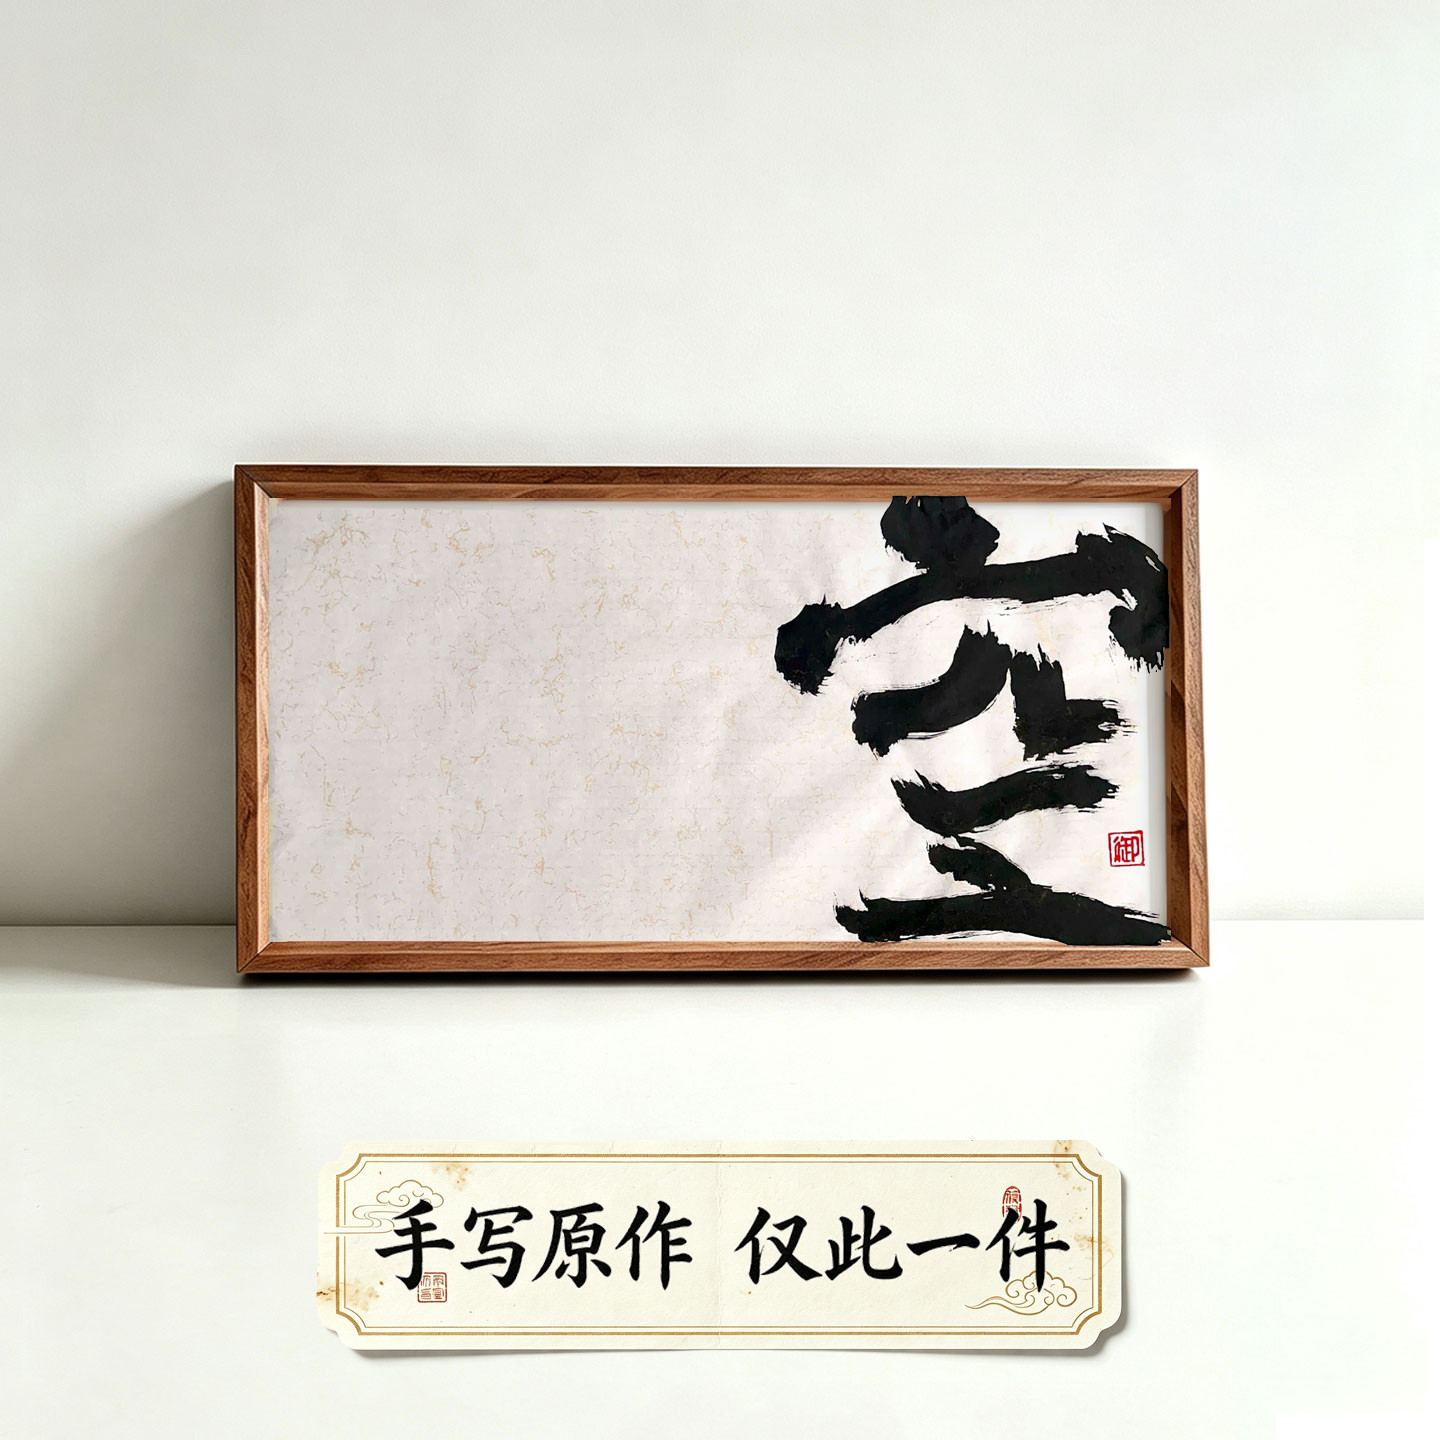 空
御
手写原作 仅此一件